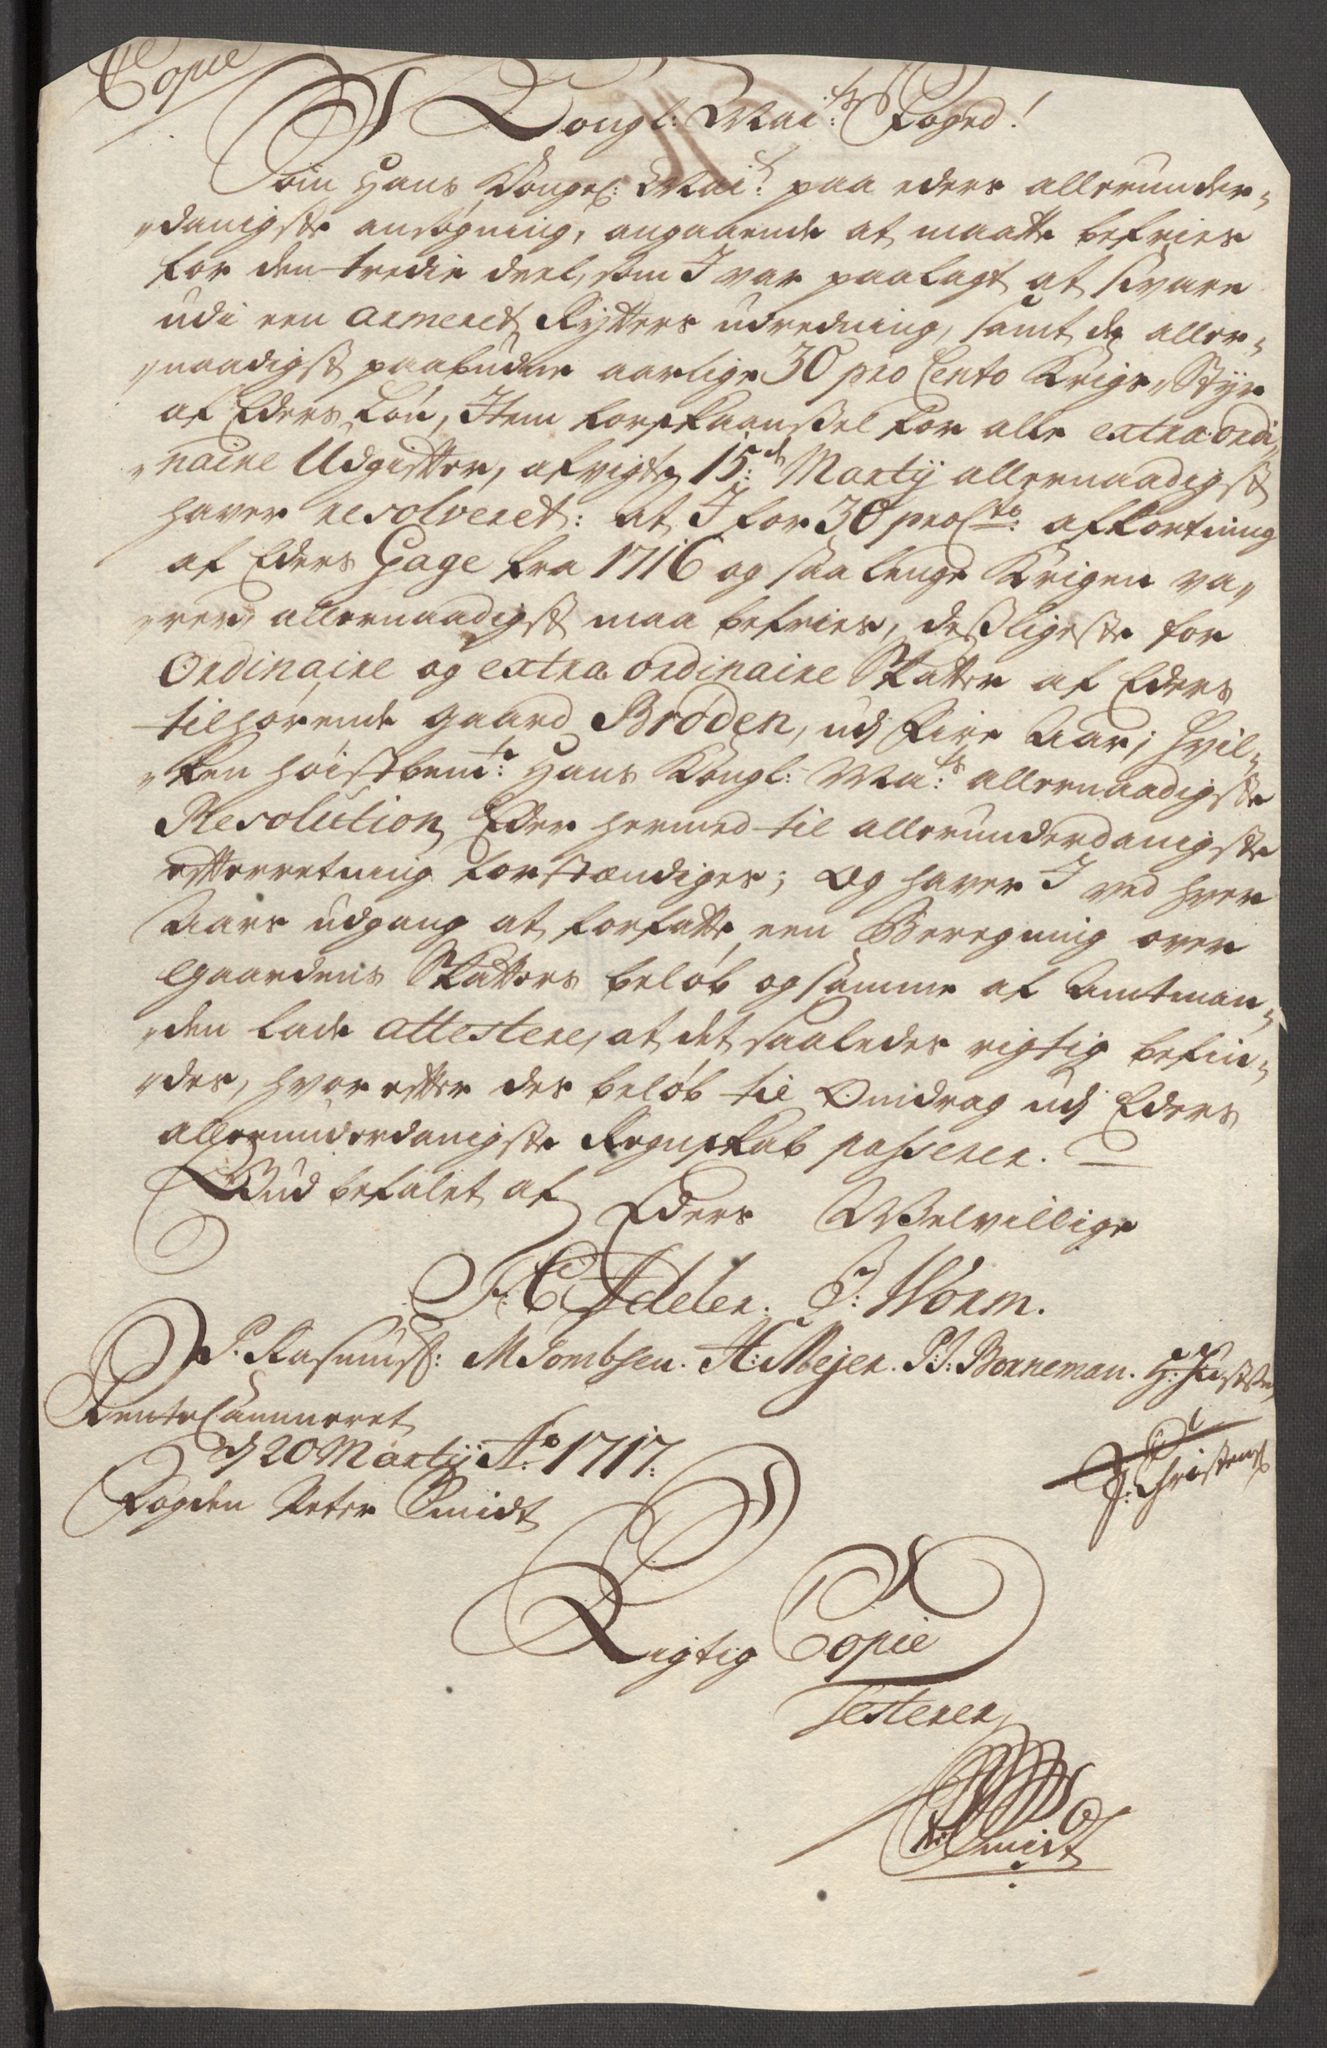 Copie
Kongl: Mai:ts Foged!
Som Hans Kongel: Mai:t paa eders allerunder-
danigste ansøgning, angaaende at maatte befries
for den tredie deel, som I var paalagt at svare
udi een armeret Rytters udredning, samt de aller-
naadigst paabudne aarlige 30 pro Cento Krigs-Styr
af Eders Løn, Item forskaanssel for alle extraordi-
naire Udgifter, afvigte 15:de Martij allernaadigst
haver resolveret: at I for 30 proC:to afkortning
af Eders Gage fra 1716 og saa lenge Krigen va-
rer, allernaadigst maa befries, desligeste for
Ordinaire og extra ordinaire Skatter af Eders
tilhørende gaard Brøden, udj Fire Aar; hvil-
ken høistbem:te Hans Kongl: Ma:ts allernaadigste
Resolution Eder hermed til allerunderdanigste
efterretning forstændiges; Og haver I ved hver
Aars udgang at forfatte een Beregning over
Gaardens Skatters beløb og samme af Amtman-
den lade attestere, at det saaledes rigtig befin-
des, hvor efter des beløb til Omdrag udj Eders
allerunderdanigste Regnskab passerer.
Gud befalet af
Eders Velvillige
F: C Adeler. J: Worm.
P. Rasmuss: M Tombsen. A: Mejer. P: J: Borneman. H:
RenteCammeret
d 20 Martij A:o 1717.
J: Christens
Fogden Peter Smidt
Rigtig Copie
Testerer
Smidt